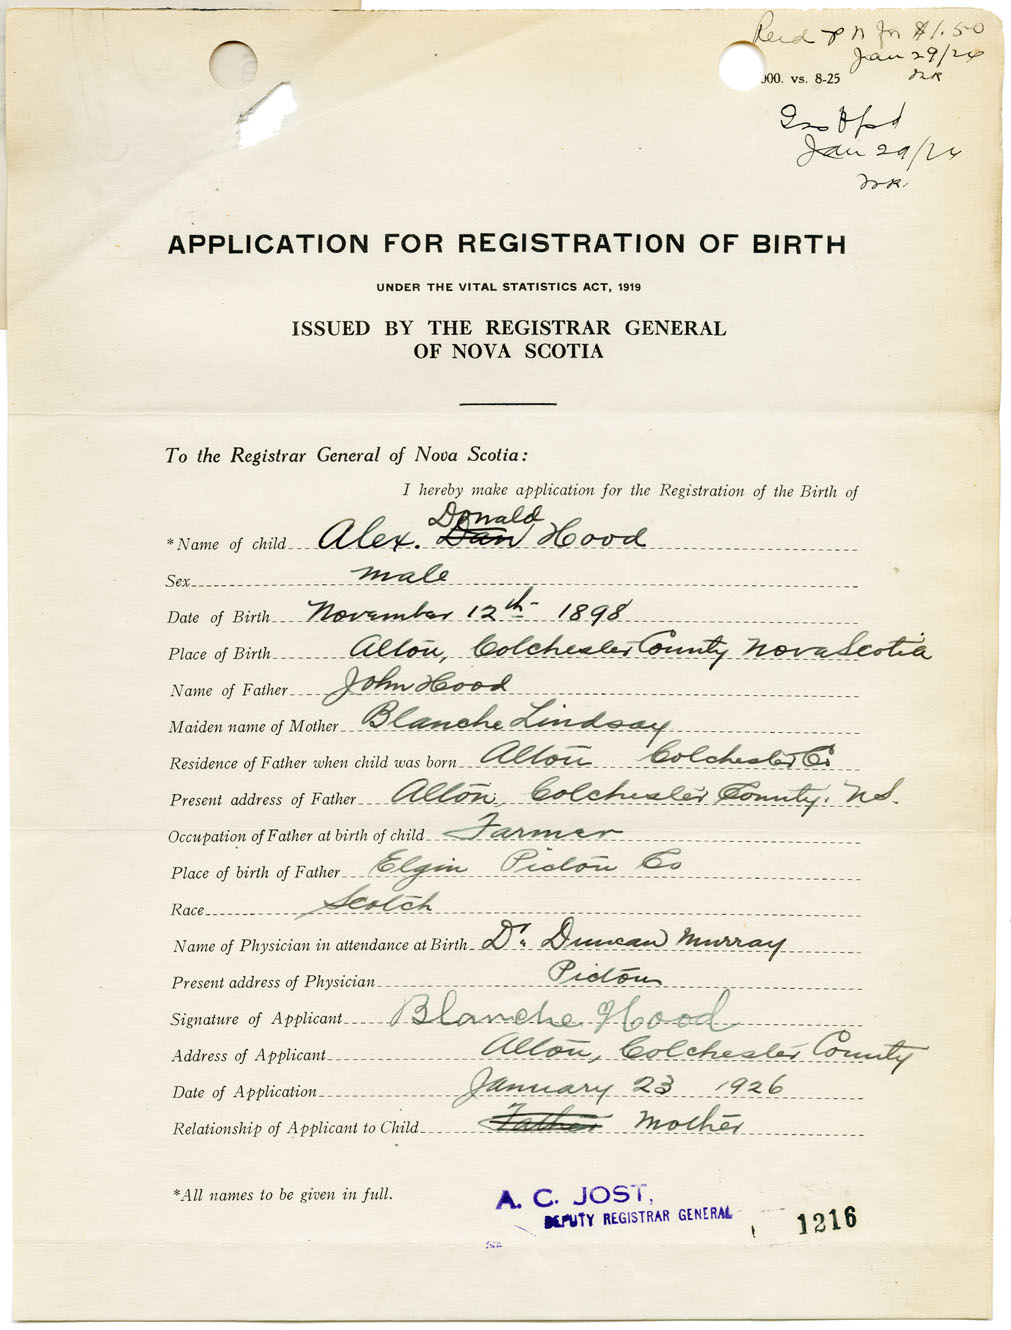 Recd P N for $1.50
Jan 29/26
000. vs. 8-25
Jan 29/26
APPLICATION FOR REGISTRATION OF BIRTH
UNDER THE VITAL STATISTICS ACT, 1919
ISSUED BY THE REGISTRAR GENERAL
OF NOVA SCOTIA
To the Registrar General of Nova Scotia:
I hereby make application for the Registration of the Birth of
Donald
*Name of child Alex. Dan Hood
Sex male
Date of Birth November 12th 1898
Place of Birth Alton, Colchester County Nova Scotia
Name of Father John Hood
Maiden name of Mother Blanche Lindsay
Residence of Father when child was born Alton Colchester Co
Present address of Father Alton, Colchester County, N.S.
Occupation of Father at birth of child Farmer
Place of birth of Father Elgin Pictou Co
Race Scotch
Name of Physician in attendance at Birth Dr. Duncan Murray
Present address of Physician Pictou
Signature of Applicant Blanche Hood
Address of Applicant Alton, Colchester County
Date of Application January 23 1926
Relationship of Applicant to Child Father Mother
*All names to be given in full.
A. C. JOST,
DEPUTY REGISTRAR GENERAL
1216